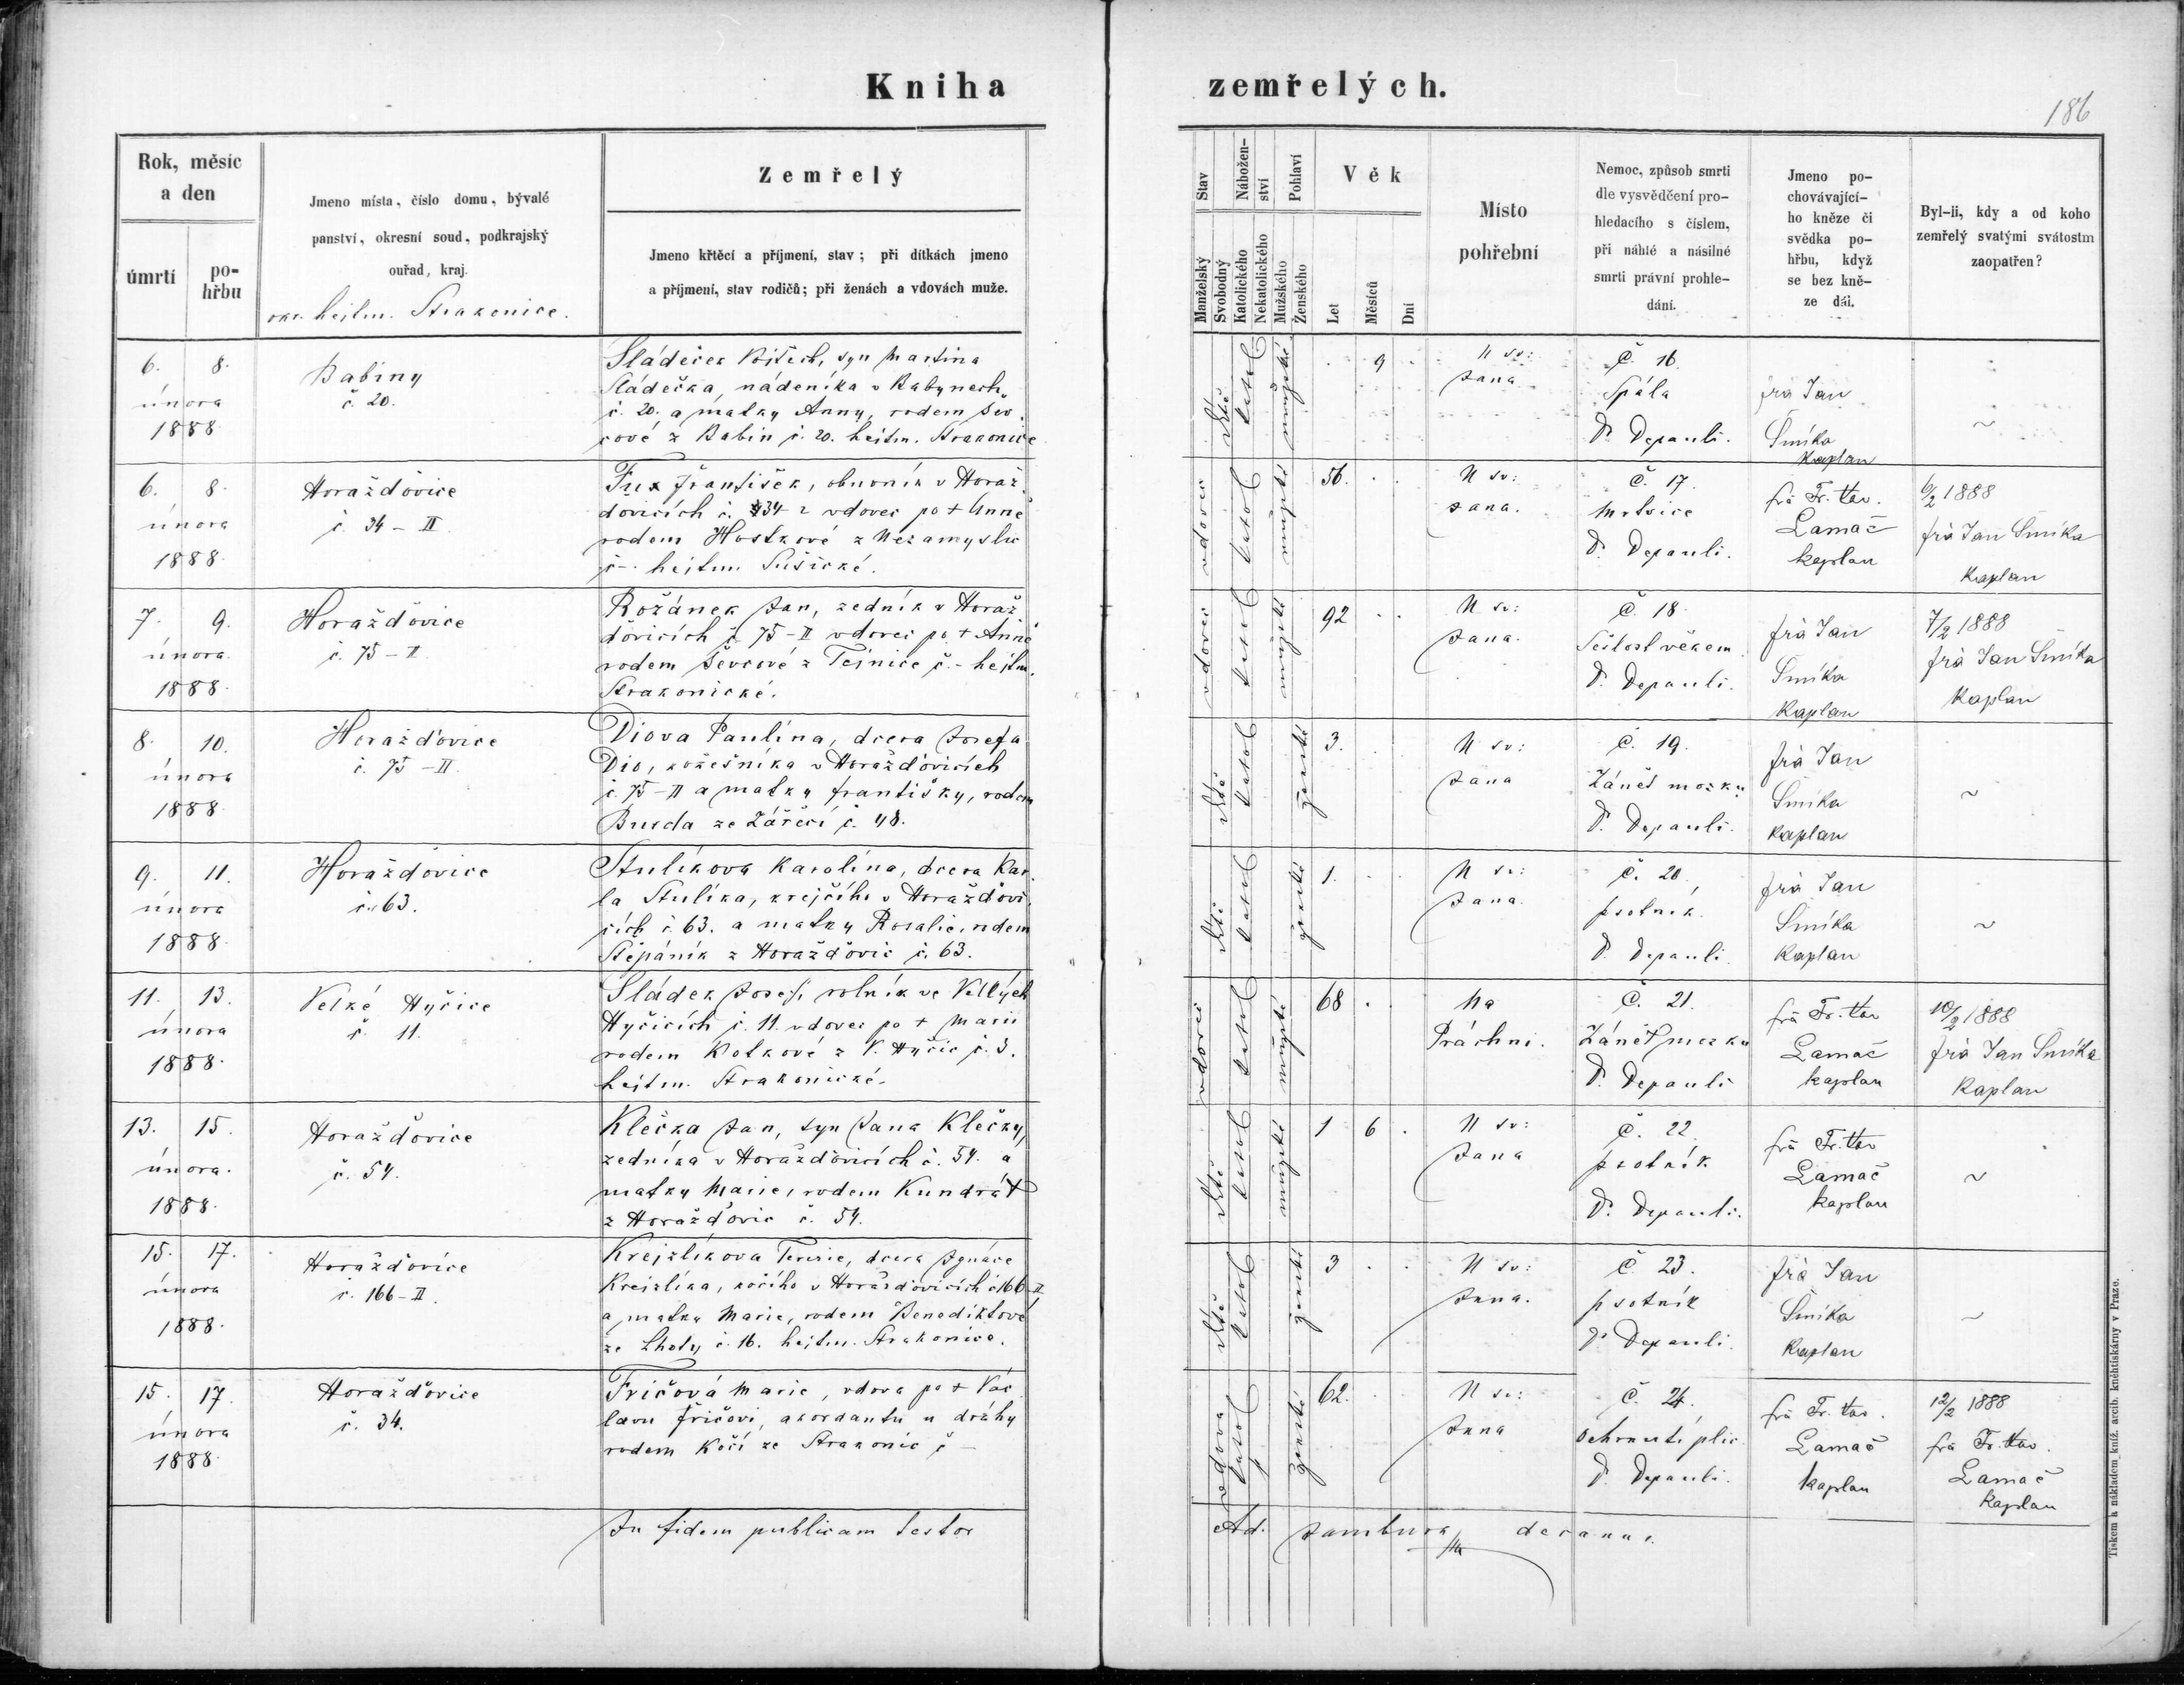 Kniha
zemřelých.
186
Rok, měsíc
a den
úmrtí
po-
hřbu
Jmeno místa, číslo domu, bývalé
panství, okresní soud, podkrajský
ouřad, kraj.
okr. hejtm. Strakonice.
Zemřelý
Jmeno křtěcí a příjmení, stav; při dítkách jmeno
a příjmení, stav rodičů; při ženách a vdovách muže.
Stav
Manželský
Svobodný
Nábožen-
ství
Katolického
Nekatolického
Pohlaví
Mužského
Ženského
Věk
Let
Měsíců
Dní
Místo
pohřební
Nemoc, způsob smrti
dle vysvědčení pro-
hledacího s číslem,
při náhlé a násilné
smrti právní prohle-
dání.
Jmeno po-
chovávající-
ho kněze či
svědka po-
hřbu, když
se bez kně-
ze dál.
Byl-li, kdy a od koho
zemřelý svatými svátostm
zaopatřen?
6. 8.
února
1888
Babiny
č. 20.
Sládeček Vojtěch, syn Martina
Sládečka, nádeníka v Babynech
č. 20. a matky Anny, rodem Šev
cové z Babin č. 20. hejtm. Strakonice
dítě
katol
mužské
9
U sv:
Jana
Č. 16.
Spála
Dr Depauli.
frà Jan
Smíka
Kaplan
~
6. 8.
února
1888.
Horažďovice
č. 34 - II
Fux František, obuvník v Horaž
ďovicích č. 34 2 vdovec po + Anně
rodem Hostkové z Nezamyslic
č - hejtm. Sušické.
vdovec
katol
mužské
56.
U sv:
Jana.
Č. 17.
Mrtvice
Dr Depauli.
frà Fr. Xav.
Lamač
kaplan
6/2 1888
frà Jan Smíka
Kaplan
7. 9.
února
1888.
Horažďovice
č. 75 - II
Rožánek Jan, zedník v Horaž
ďovicích č. 75 - II vdovec po + Anně
rodem Ševcové z Tejnice č. - hejtm.
Strakonické.
vdovec
katol
mužské
92
U sv:
Jana.
Č. 18.
Sešlost věkem
Dr Depauli.
frà Jan
Smíka
Kaplan
7/2 1888
frà Jan Smíka
Kaplan
8. 10.
února
1888.
Horažďovice
č. 75 - II.
Diova Paulína, dcera Josefa
Dio, kožešníka v Horažďovicích
č. 75 - II a matky Františky, rodem
Burda ze Zářečí č. 48.
dítě
katol
ženské
3.
U sv:
Jana
Č. 19.
Zánět mozku
Dr Depauli.
frà Jan
Smíka
kaplan
~
9. 11.
února
1888.
Horažďovice
č. 63.
Stulíkova Karolína, dcera Kar
la Stulíka, krejčího v Horažďovi
cích č. 63. a matky Rosalie, rodem
Štěpáník z Horažďovic č. 63.
dítě
katol
ženské
1.
U sv:
Jana.
Č. 20.
psotník.
Dr Depauli
frà Jan
Smíka
Kaplan
~
11. 13.
února
1888.
Velké Hyčice
č. 11.
Sládek Josef, rolník ve Velkých
Hyčicích č. 11. vdovec po + Marii
rodem Kotkové z V. Hyčic č. 3.
hejtm. Strakonické.
vdovec
katol
mužské
68
Na
Práchni.
Č. 21.
Zánět mozku
Dr Depauli
frà Fr. Xav
Lamač
kaplan
10/2 1888
frà Jan Smíka
Kaplan
13. 15.
února.
1888.
Horažďovice
č. 54.
Klečka Jan, syn Jana Klečky,
zedníka v Horažďovicích č. 54. a
matky Marie, rodem Kundrát
z Horažďovic č. 54.
dítě
katol
mužské
1 6
U sv:
Jana
Č. 22.
psotník
Dr Depauli.
frà Fr. Xav
Lamač
kaplan
~
15. 17.
února
1888.
Horažďovice
č. 166 - II.
Krejzlíkova Terezie, dcera Ignáce
Krejzlíka, kočího v Horažďovicích č 166 - II
a matky Marie, rodem Benediktové
ze Lhoty č. 16. hejtm. Strakonice.
dítě
katol
ženské
3
U sv:
Jana.
Č. 23.
psotník
Dr Depauli.
frà Jan
Smíka
Kaplan
~
15. 17.
února
1888.
Horažďovice
č. 34.
Fričová Marie, vdova po + Vác
lavu Fričovi, akordantu u dráhy
rodem Kočí ze Strakonic č -
vdova
katol
ženské
62.
U sv:
Jana
Č. 24.
Ochrnutí plic
Dr Depauli.
frà Fr. Xav.
Lamač
kaplan
12/2 1888
frà Fr. Xav.
Lamač
kaplan
In fidem publicam testor
Ad. Jambura
decanus.
Tiskem a nákladem kníž. arcib. kněhtiskárny v Praze.